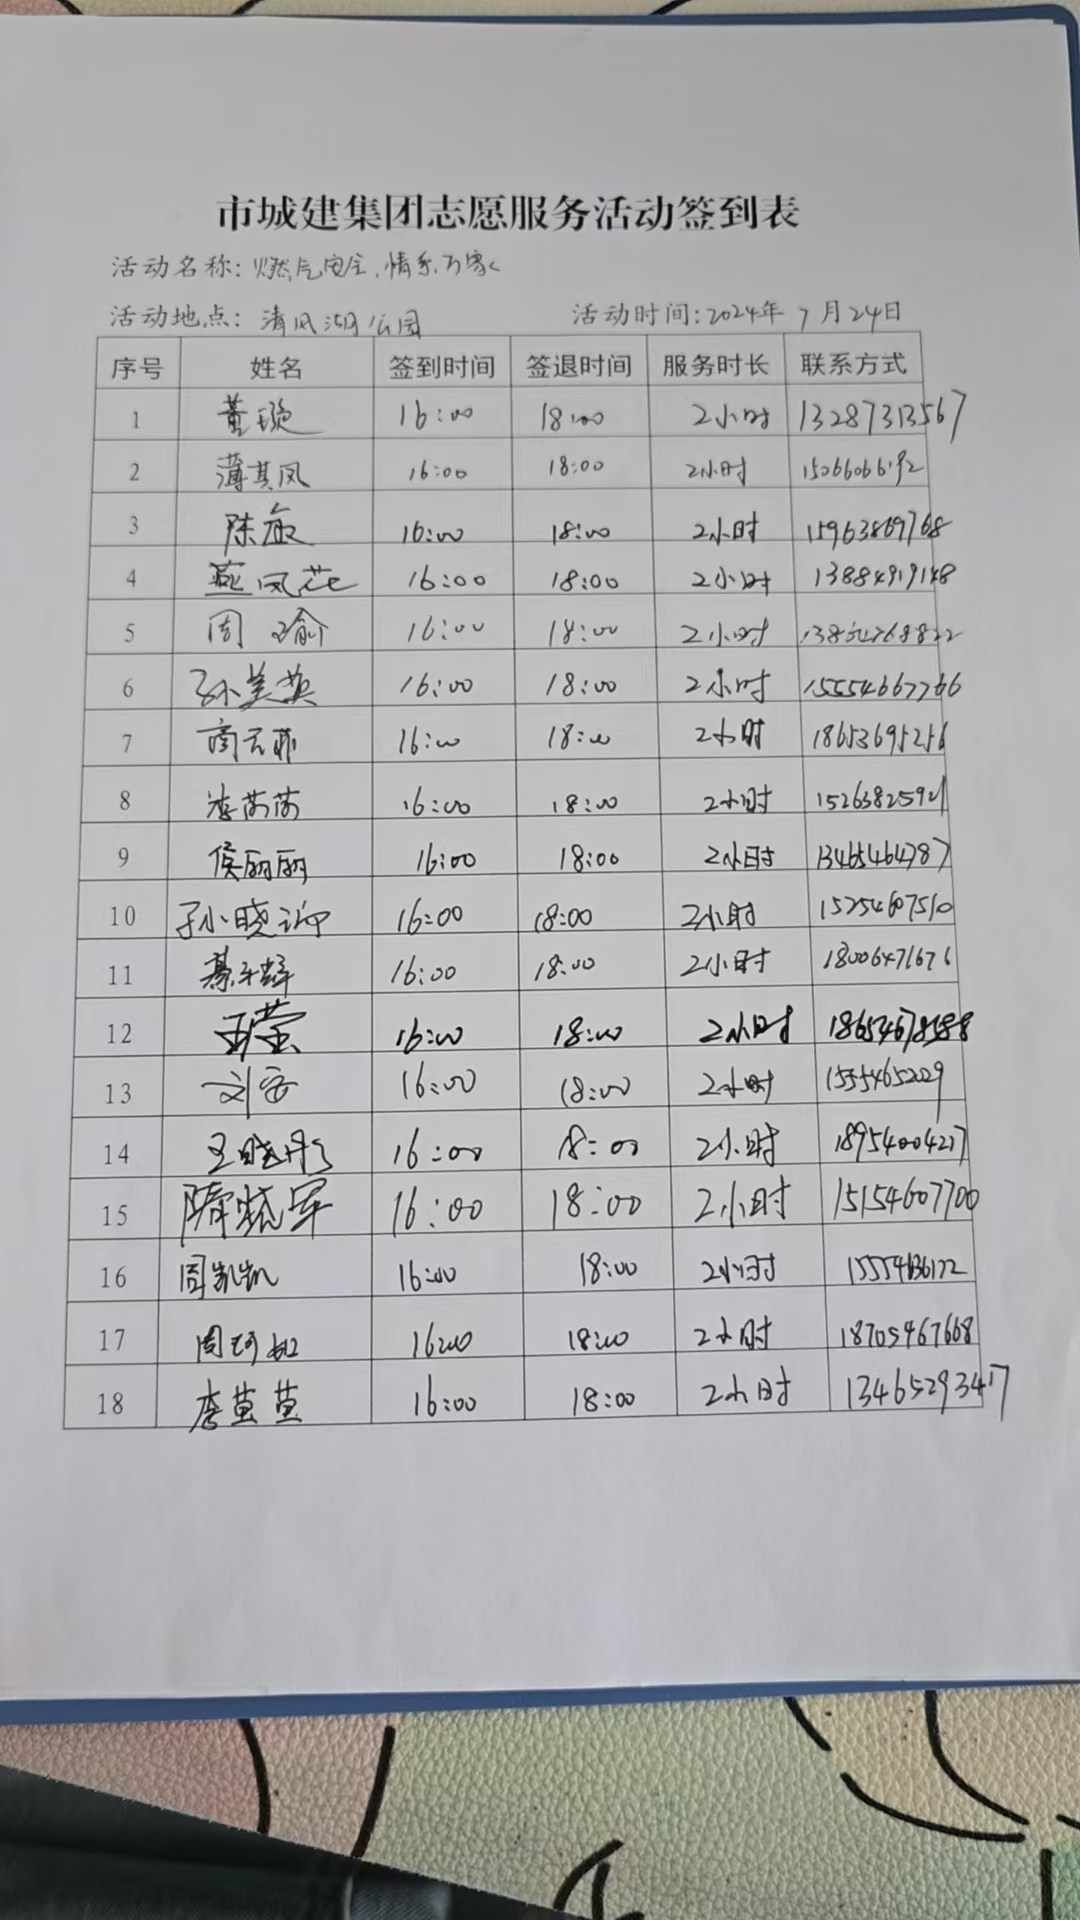 市城建集团志愿服务活动签到表
活动名称: 燃气安全,情系万家
活动地点: 清风湖公园 活动时间:2024年 7月24日
序号 姓名 签到时间 签退时间 服务时长 联系方式
1 董璇 16:00 18:00 2小时 13287313567
2 薄其凤 16:00 18:00 2小时
3 陈敏 16:00 18:00 2小时 15963869768
4 燕凤花 16:00 18:00 2小时 13884919148
5 周瑜 16:00 18:00 2小时
6 孙美英 16:00 18:00 2小时 15554667766
7 商云菲 16:00 18:00 2小时 18653695256
8 李芮芮 16:00 18:00 2小时 15263825921
9 侯丽丽 16:00 18:00 2小时 13465464787
10 孙晓 16:00 18:00 2小时 15254607510
11 16:00 18:00 2小时 18006471676
12 王莹 16:00 18:00 2小时 18654678588
13 刘 16:00 18:00 2小时 15554652029
14 王晓彤 16:00 18:00 2小时 18954004217
15 隋晓军 16:00 18:00 2小时 15154607700
16 周凯凯 16:00 18:00 2小时
17 周 如 16:00 18:00 2小时 18705467668
18 李莹莹 16:00 18:00 2小时 13465293417